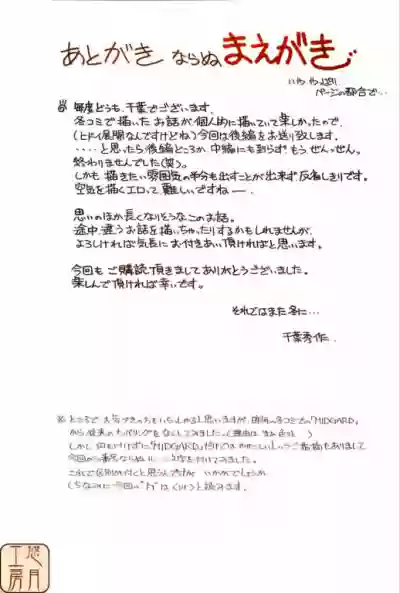 あとがき ならぬ まえがき
ページの都合で…
毎度どうも、千葉でございます。
冬コミで描いた お話が個人的に描いていて楽しかったので、
(ヒドイ展開なんですけどね)今回は後編をお送り致します。
・・・・と思ったら後編どころか 中編にも到らず もう ぜんっぜん。
終わりませんでした(笑)。
しかも 描きたい雰囲気の半分も出すことが出来ず 反省しきりです。
空気を描くエロって 難しいですねー。
思いのほか長くなりそうなこのお話。
途中 違うお話を描いちゃったりするかもしれませんが、
よろしければ気長に お付きあい頂ければと思います。
今回も ご購読頂きまして ありがとうございました。
楽しんで頂ければ幸いです。
それではまた 冬に…
千葉秀作
※ ところで お気づきの方もいらっしゃると思いますが、 冬コミでの「MIDGARD」
から 従来の ナンバリングを なくしてみました。
しかし 「MIDGARD」だけでは
今回から
これで区別が付くと思うんですが いかがでしょうか。
(ちなみに 今回の と読みます。
悠月工房